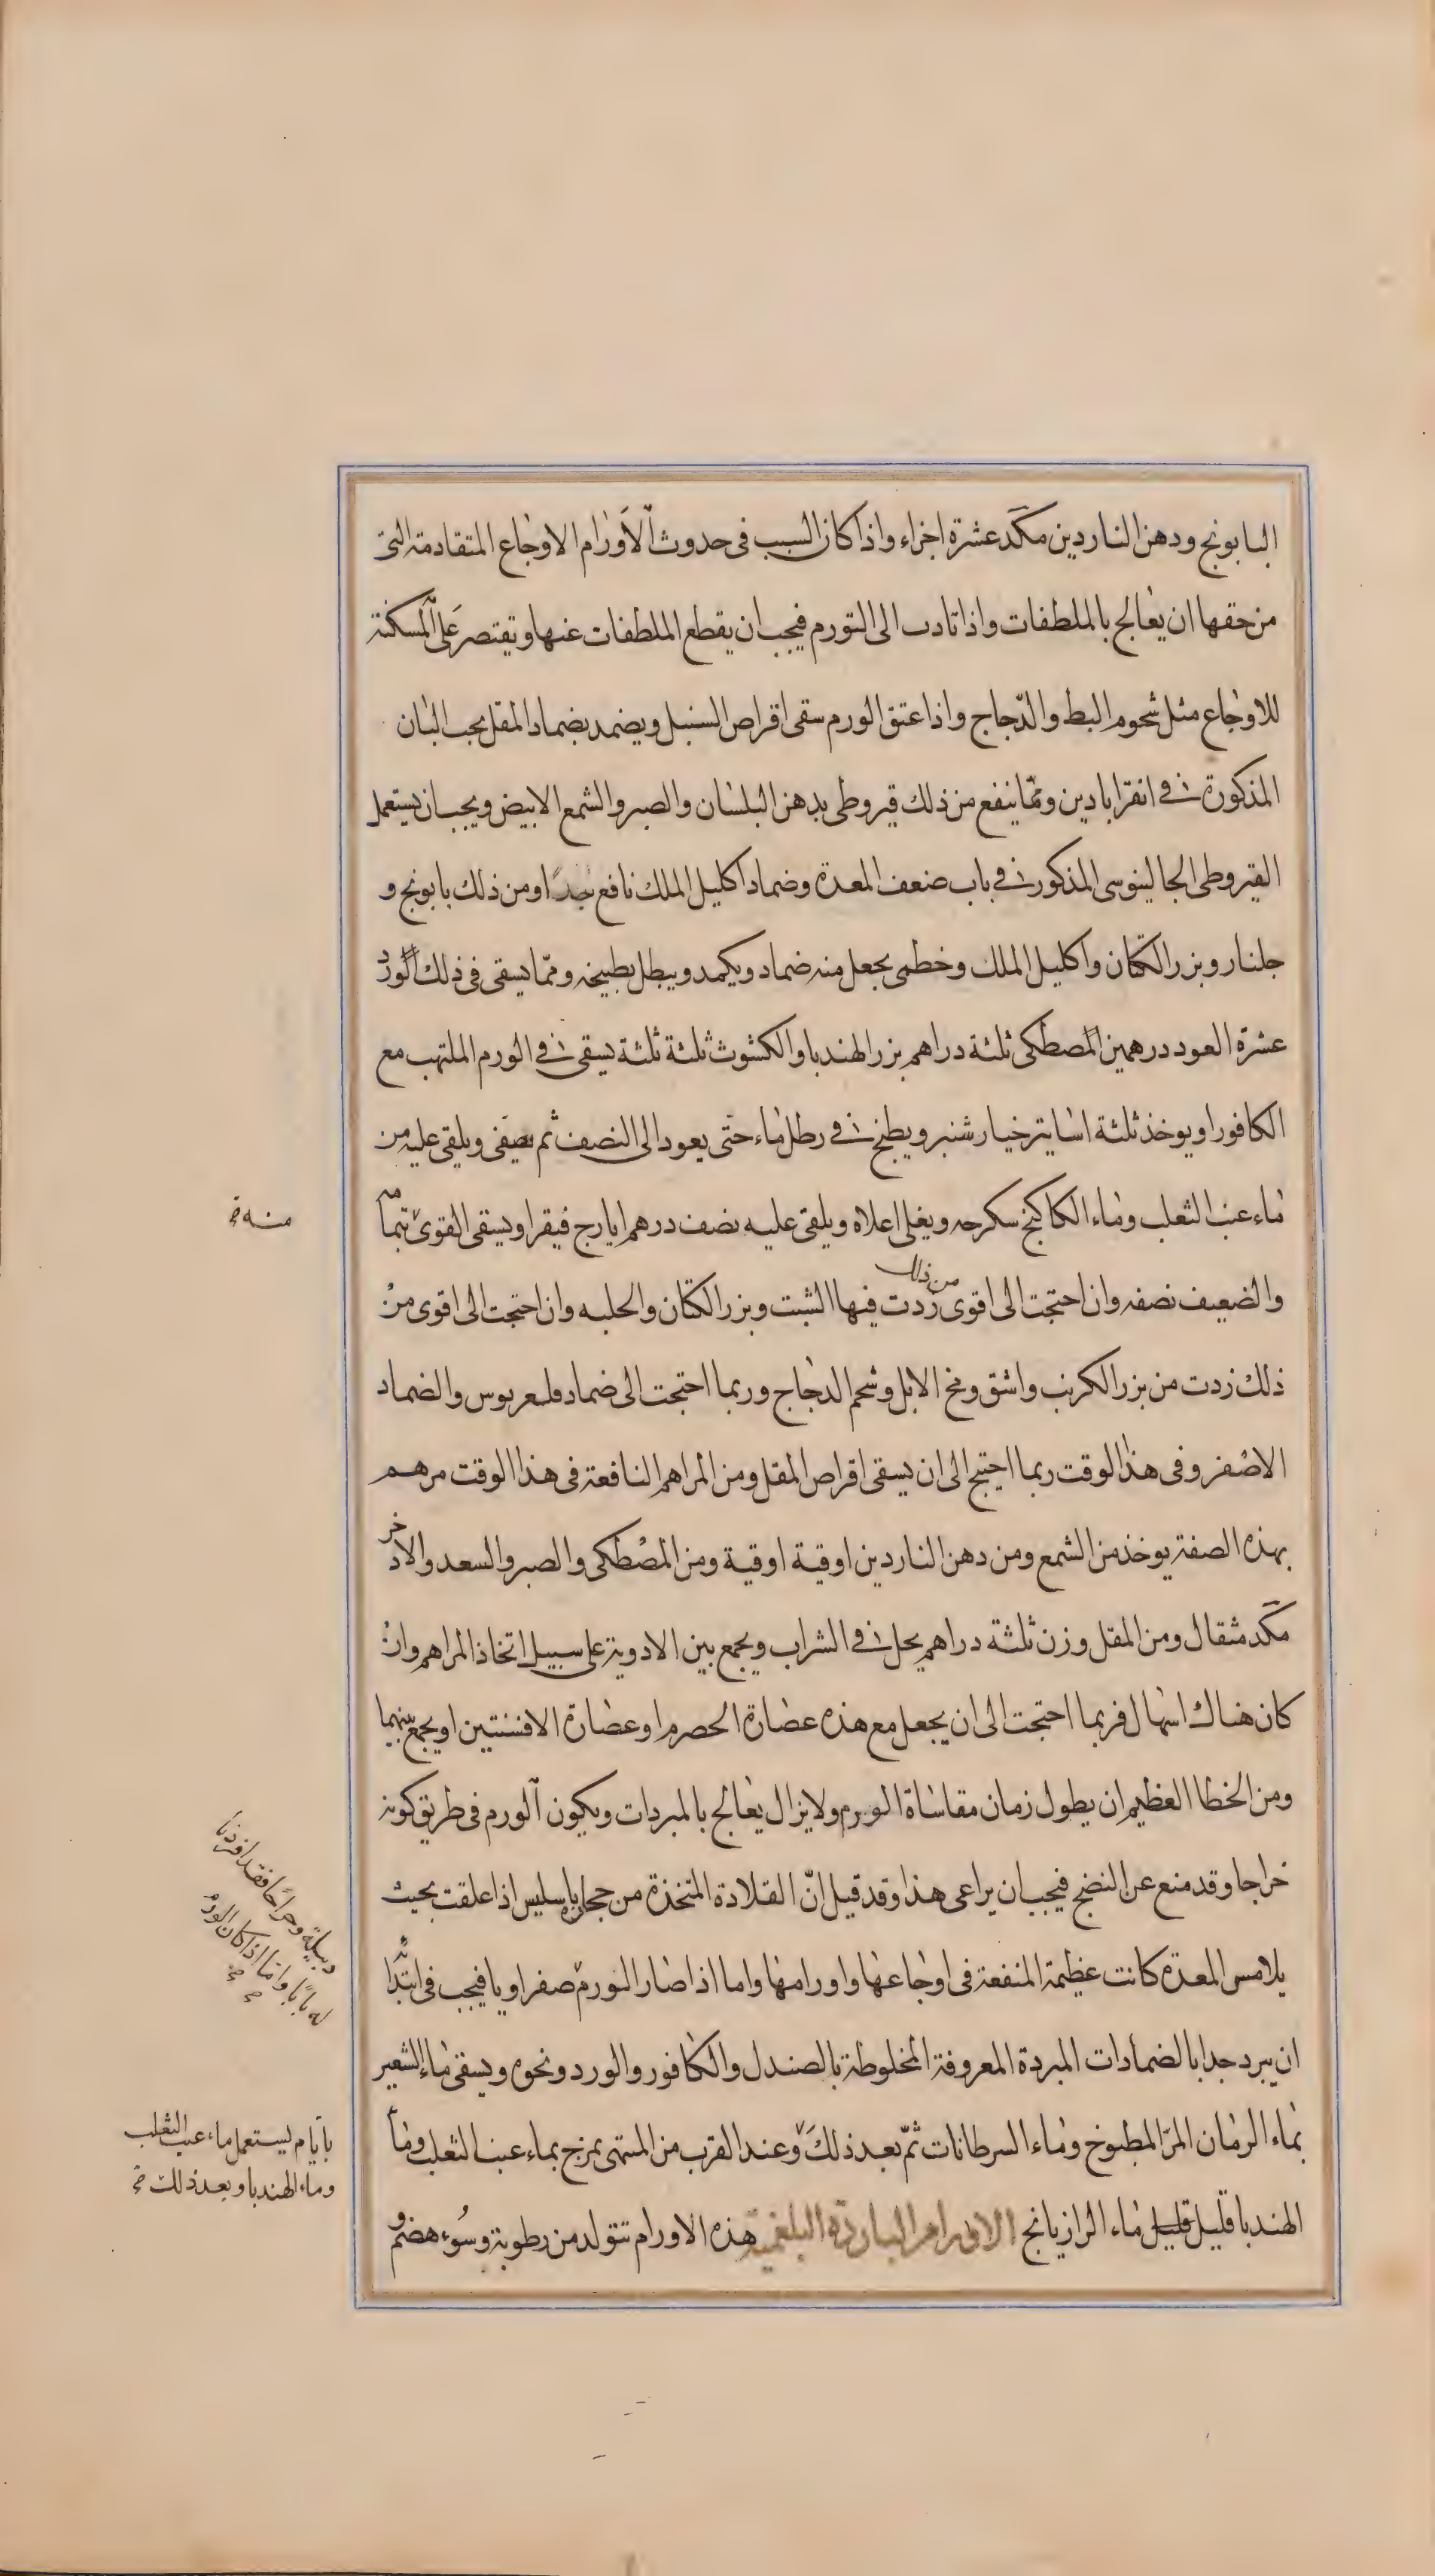 البابونج ودهن الناردين مكد عشرة اجزاء واذا كان السبب فى حدوث الاورام الاوجاع المتقادمة التى
من حقها ان يعالج بالملطفات واذا تادت الى التورم فيجب ان يقطع الملطفات عنها ويقتصر على المسكنة
للاوجاع مثل شحوم البط والدّجاج واذا عتق الورم سقى اقراص السنبل ويضمد بضماد المقل بحب البان
المذكورة فى انقراباذين وممّا ينفع من ذلك قيروطى بدهن البلسان والصبر والشمع الابيض ويجب ان يستعمل
القيروطى الجالينوسى المذكور فى باب ضعف المعدة وضماد اكليل الملك نافع جدا ومن ذلك بابونج و
جلنار وبزر الكتان واكليل الملك وخطمى يجعل منه ضماد ويكمد ويبطل بطبيخه وممّا يسقى فى ذلك الورد
عشرة العود درهمين المصطكى ثلثة دراهم بزر الهندبا والكشوث ثلثة ثلثة يسقى فى الورم الملتهب مع
الكافور او يوخذ ثلثة اساتير خيار شنبر ويطبخ فى رطل ماء حتّى يعود الى النصف ثم يصفى ويلقى عليه من
ماء عنب الثعلب وماء الكاكنج سكرجه ويغلى اعلاه ويلقى عليه نصف درهم ايارج فيقرا ويسقى القوى بتمامه
والضعيف نصفه وان احتجت الى اقوى من ذلك زدت فيها الشبت وبزر الكتان والحلبه وان احتجت الى اقوى من
ذلك زدت من بزر الكرنب واشق ومخ الابل وشحم الدجاج وربما احتجت الى ضماد والضماد
الاصفر وفى هذا الوقت ربما احتيج الى ان يسقى اقراص المقل ومن المراهم النافعة فى هذا الوقت مرهم
بهذه الصفة يوخذ من الشمع ومن دهن الناردين اوقية اوقية ومن المصطكى والصبر والسعد والاذخر
مكد مثقال ومن المقل وزن ثلثة دراهم يحل فى الشراب ويجمع بين الادوية على سبيل اتخاذ المراهم وان
كان هناك اسهال فربما احتجت الى ان يجعل مع هذه عصارة الحصرم او عصارة الافسنتين او يجمع بينهما
ومن الخطا العظيم ان يطول زمان مقاساة الورم ولا يزال يعالج بالمبردات ويكون الورم فى طريق كونه
خراجا وقد منع عن النضج فيجب ان يراعى هذا وقد قيل انّ القلادة المتخذة من حجارة باسليس اذا علقت بحيث
يلامس المعدة كانت عظيمة المنفعة فى اوجاعها واورامها واما اذا صار الورم صفراويا فيجب فى ابتداء
ان يبرد جدا بالضمادات المبردة المعروفة المخلوطة بالصندل والكافور والورد ونحوه ويسقى ماء الشعير
بماء الرمان المرّ المطبوخ وماء السرطانات ثمّ بعد ذلك وعند القرب من المنتهى يمزج بماء عنب الثعلب وماء
الهندبا قليل قليل ماء الرازيانج الاورام الباردة البلغمية هذه الاورام تتولد من رطوبة وسوء هضم و
منه خ
دبيلة وخراجا فقد افردنا
له بابا واما اذا كان الورم
بايّام يستعمل ماء عنب الثعلب
وماء الهندبا وبعد ذلك خ